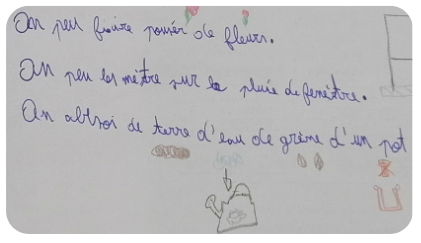 On peu fraire pousér de fleurs.
On peu les métre sur le pluie de fenétre.
On abbsoi de terre d'eau de grène d'un pot